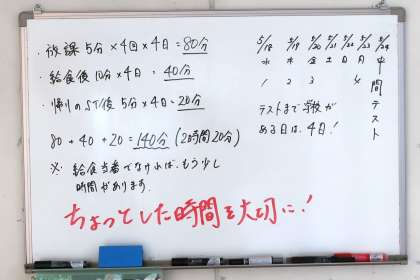 ・放課5分×4回×4日=80分
・給食後10分×4日=40分
・帰りのST後5分×4日=20分
80+40+20=140分(2時間20分)
※給食当番でなければ、もう少し
時間があります。
5/18 5/19 5/20 5/21 5/22 5/23 5/24
水 木 金 土 日 月 中間テスト
1 2 3 4
テストまで学校が
ある日は、4日!
ちょっとした時間を大切に!